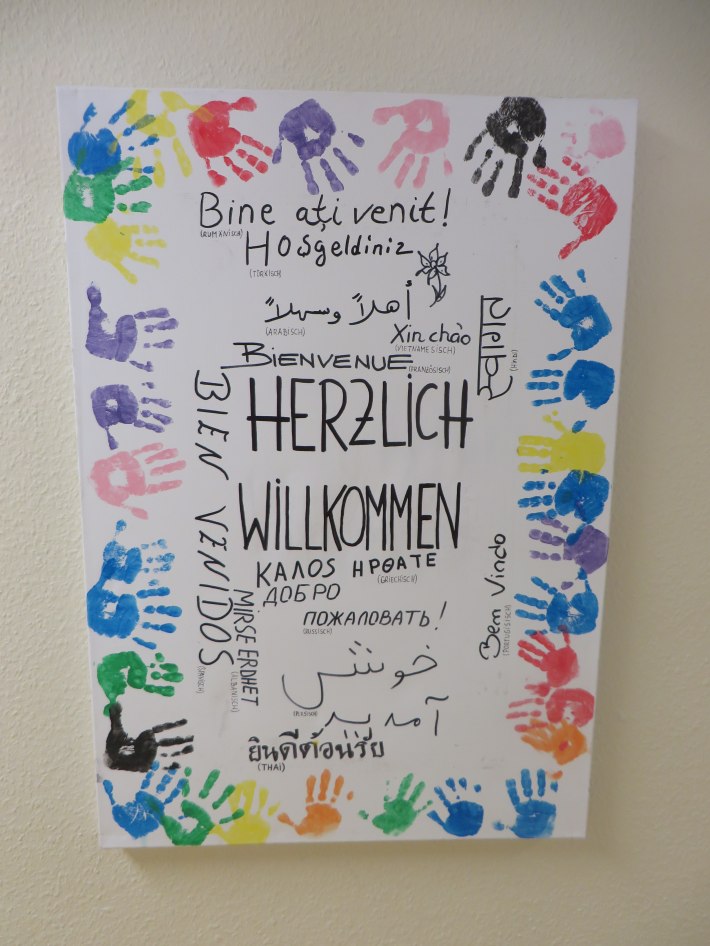 Bine aţi venit!
(RUMÄNISCH)
Hoşgeldiniz
(TÜRKISCH)
أهلاً وسهلاً
(ARABISCH)
Xin chào
(VIETNAMESISCH)
(HINDI)
BIENVENUE
(FRANZÖSISCH)
HERZLICH
WILLKOMMEN
BIEN VENIDOS
(SPANISCH)
ΚΑΛΟΣ ΗΡΘΑΤΕ
(GRIECHISCH)
ДОБРО
ПОЖАЛОВАТЬ!
(RUSSISCH)
MIRSE ERDHET
(ALBANISCH)
Bem Vindo
(PORTUGISISCH)
خوش
آمدید
(PERSISCH)
ยินดีต้อนรับ
(THAI)